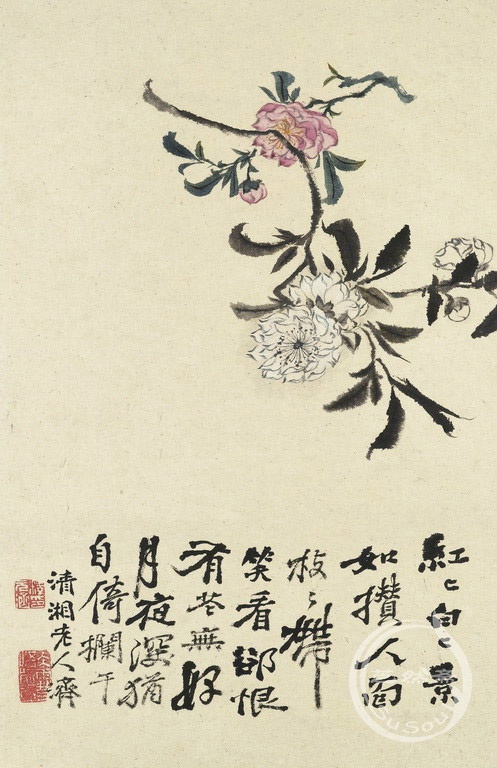 紅〻白〻葉
如攢人面
枝〻帶
笑看卻恨
有花無好
月夜深猶
自倚欄干
清湘老人濟